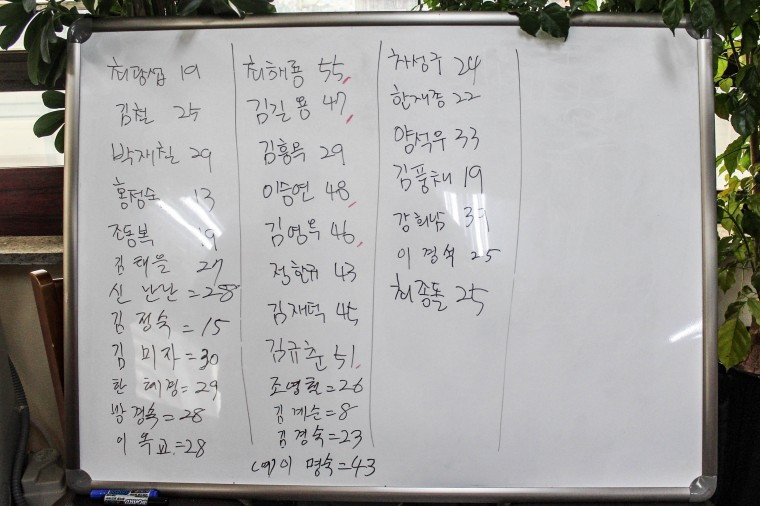 최광섭 19
김철 25
박재철 29
홍정숙 13
조동복 19
김태을 27
신난난=28
김정숙=15
김미자=30
한혜경=29
방경숙=28
이옥교=28
최해룡 55
김길용 47
김흥욱 29
이승연 48
김영득 46
정한규 43
김재덕 45
김규춘 51
조영철=26
김계순=8
김경숙=23
(여)이명숙=43
차성주 24
한재종 22
양석우 33
김풍채 19
강희남 39
이경석 25
최종돌 25